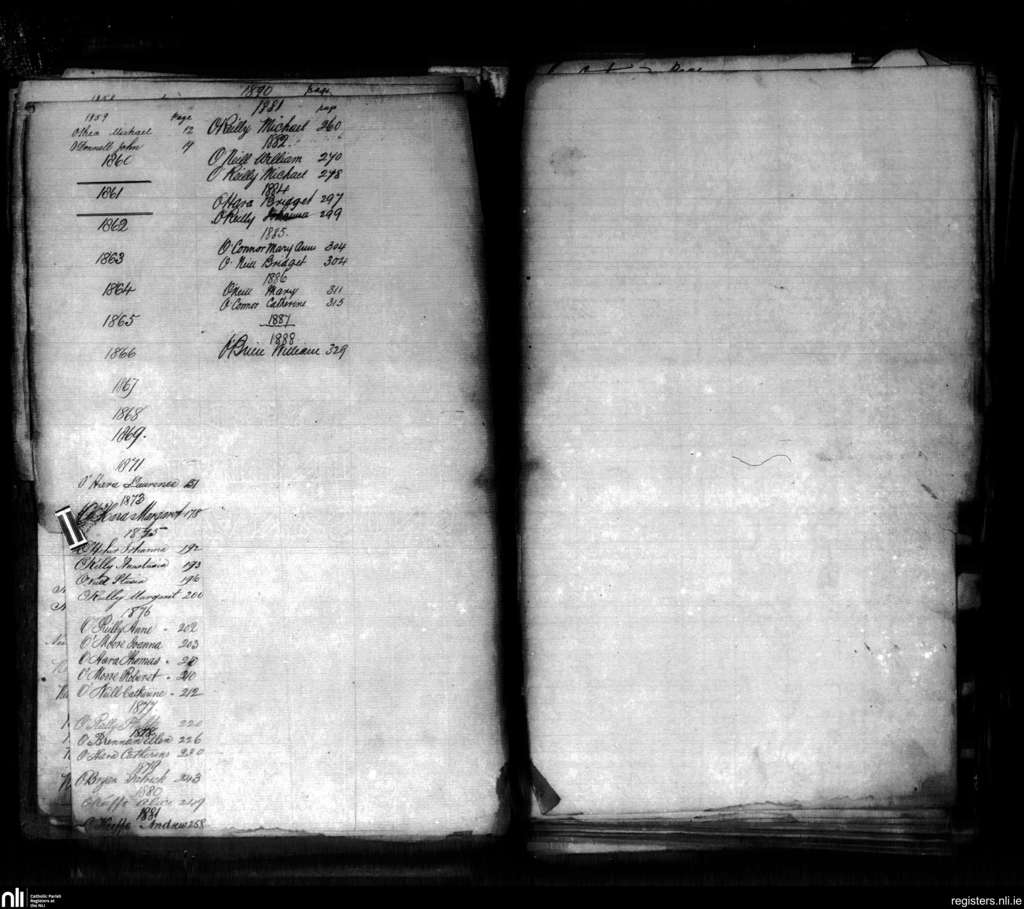 1890 page
1859 Page
O'Shea Michael 12
O'Donnell John
1860
1861
1862
1863
1864
1865
1866
1867
1868
1869.
1871
O'Hara Laurence 151
1873
O'Hara Margaret 178
1875
Johanna 192
O'Kelly Anastasia 193
O'Neil 196
O'Reilly Margaret 200
1876
O'Reilly Anne - 202
O'Moore Joanna 203
O'Hara Thomas -
O'Morre Roberet - 210
O'Neill Catherine - 212
1877
O'Reilly 220
1878
O'Brennan Ellen 226
O'Hara Catherine 230
1879
O'Bryan Patrick 243
1880
O'Keeffe Alice 249
1881
O'Keeffe Andrew 258
1881 page
O'Reilly Michael 260
1882.
O'Neill William 270
O'Reilly Michael 278
1884
O'Hara Bridget 297
O'Reilly Johanna 299
1885.
O'Connor Mary Ann 304
O'Neill Bridget 304
1886
O'Neill Mary 311
O'Connor Catherine 315
1887
1888
O'Brien William 329
Page
nli
Catholic Parish
Registers at
the NLI
registers.nli.ie